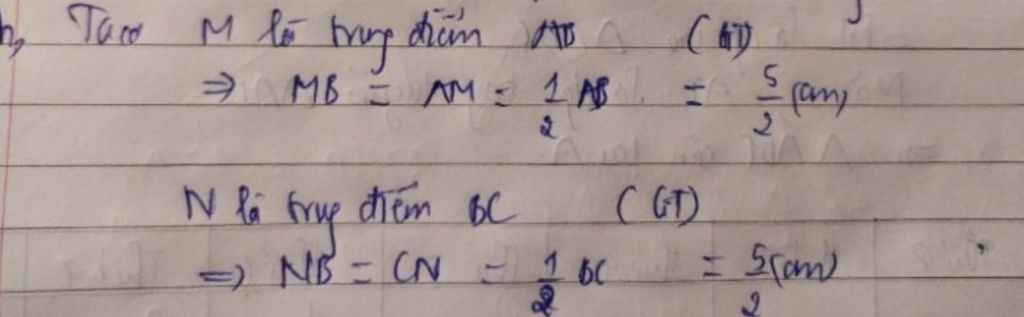 h, Ta có M là trung điểm AB (GT)
⇒ MB = AM = 1/2 AB = 5/2 (cm)
N là trung điểm BC (GT)
⇒ NB = CN = 1/2 BC = 5/2 (cm)